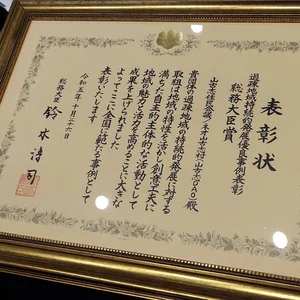 表彰状
過疎地域持続的発展優良事例表彰
総務大臣賞
山古志住民会議/ネオ山古志村・山古志DAO殿
貴団体の過疎地域の持続的発展に対する
取組は地域の特性を活かし創意工夫に
満ちた自主的主体的な活動として
地域の魅力と活力を高めることに大きな
成果を上げられました
よってここに全国に範たる事例として
表彰いたします
令和五年十月二十六日
総務大臣
鈴木淳司